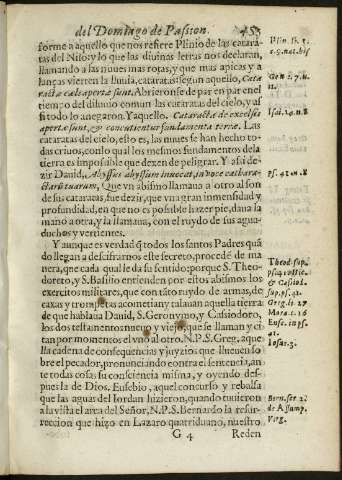 del Domingo de Passion.
forme a aquello que nos refiere Plinio de las catara-
tas del Nilo: y lo que las diuinas letras nos declaran,
llamando a las nuues mas rojas, y que mas apicas y a
lanças vierten la lluuia, cataratas: segun aquello, Cata
ractæ cæli apertæ sunt. Abrieronse de par en par en el
tiempo del diluuio comun las cataratas del cielo, y a si
todo lo anegaron. Y aquello. Cataractæ de excelsis
apertæ sunt, & concutientur fundamenta terræ. Las
cataratas del cielo, esto es, las nuues se han hecho to-
das criuos, con lo qual los mesmos fundamentos de la
tierra es impossible que dexen de peligrar. Y a si de-
zir Dauid, Abyssus abyssum inuocat, in voce catharac-
tarum tuarum, Que vn abismo llamaua a otro al son
de sus cataratas, fue dezir, que vna gran inmensidad y
profundidad, en que no es possible hazer pie, daua la
mano a otra, y la llamaua, con el ruydo de sus agua-
duchos y vertientes.
Y aunque es verdad q̃ todos los santos Padres quã
do llegan a descifrarnos este secreto, procedẽ de ma
nera, que cada qual le da su sentido: porque S. Theo-
doreto, y S. Basilio entienden por estos abismos los
exercitos militares, que con tãto ruydo de armas, de
caxas y trompetas acometian y talauan aquella tierra
de que hablaua Dauid, S. Geronymo, y Casiodoro,
los dos testamentos nueuo y viejo, que se llaman y ci
tan por momentos el vno al otro. N. P. S. Greg. aque
lla cadena de consequencias y juyzios que llueuen so-
bre el pecador, pronunciando contra el sentencia, an-
te todas cosas su consciencia misma, y oyendo des-
pues la de Dios. Eusebio, aquel concurso y rebalsa
que las aguas del Iordan hizieron, quando tuuieron
a la vista el arca del Señor, N. P. S. Bernardo la resur-
reccion que hizo en Lazaro quatriduano, nuestro
G 4 Reden
Plin. li. 5.
c. 9. nat. his
Gen i. 7. u.
11.
Isai. 24. n. 8
Ps. 41. n. 8
Theod. sup.
& Casiod.
sup. ps. 41.
Greg. li. 27
Mora. c. 16
Euse. in ps.
41.
Iosue. 3.
Bern. ser. 2.
de Assump.
Virg.